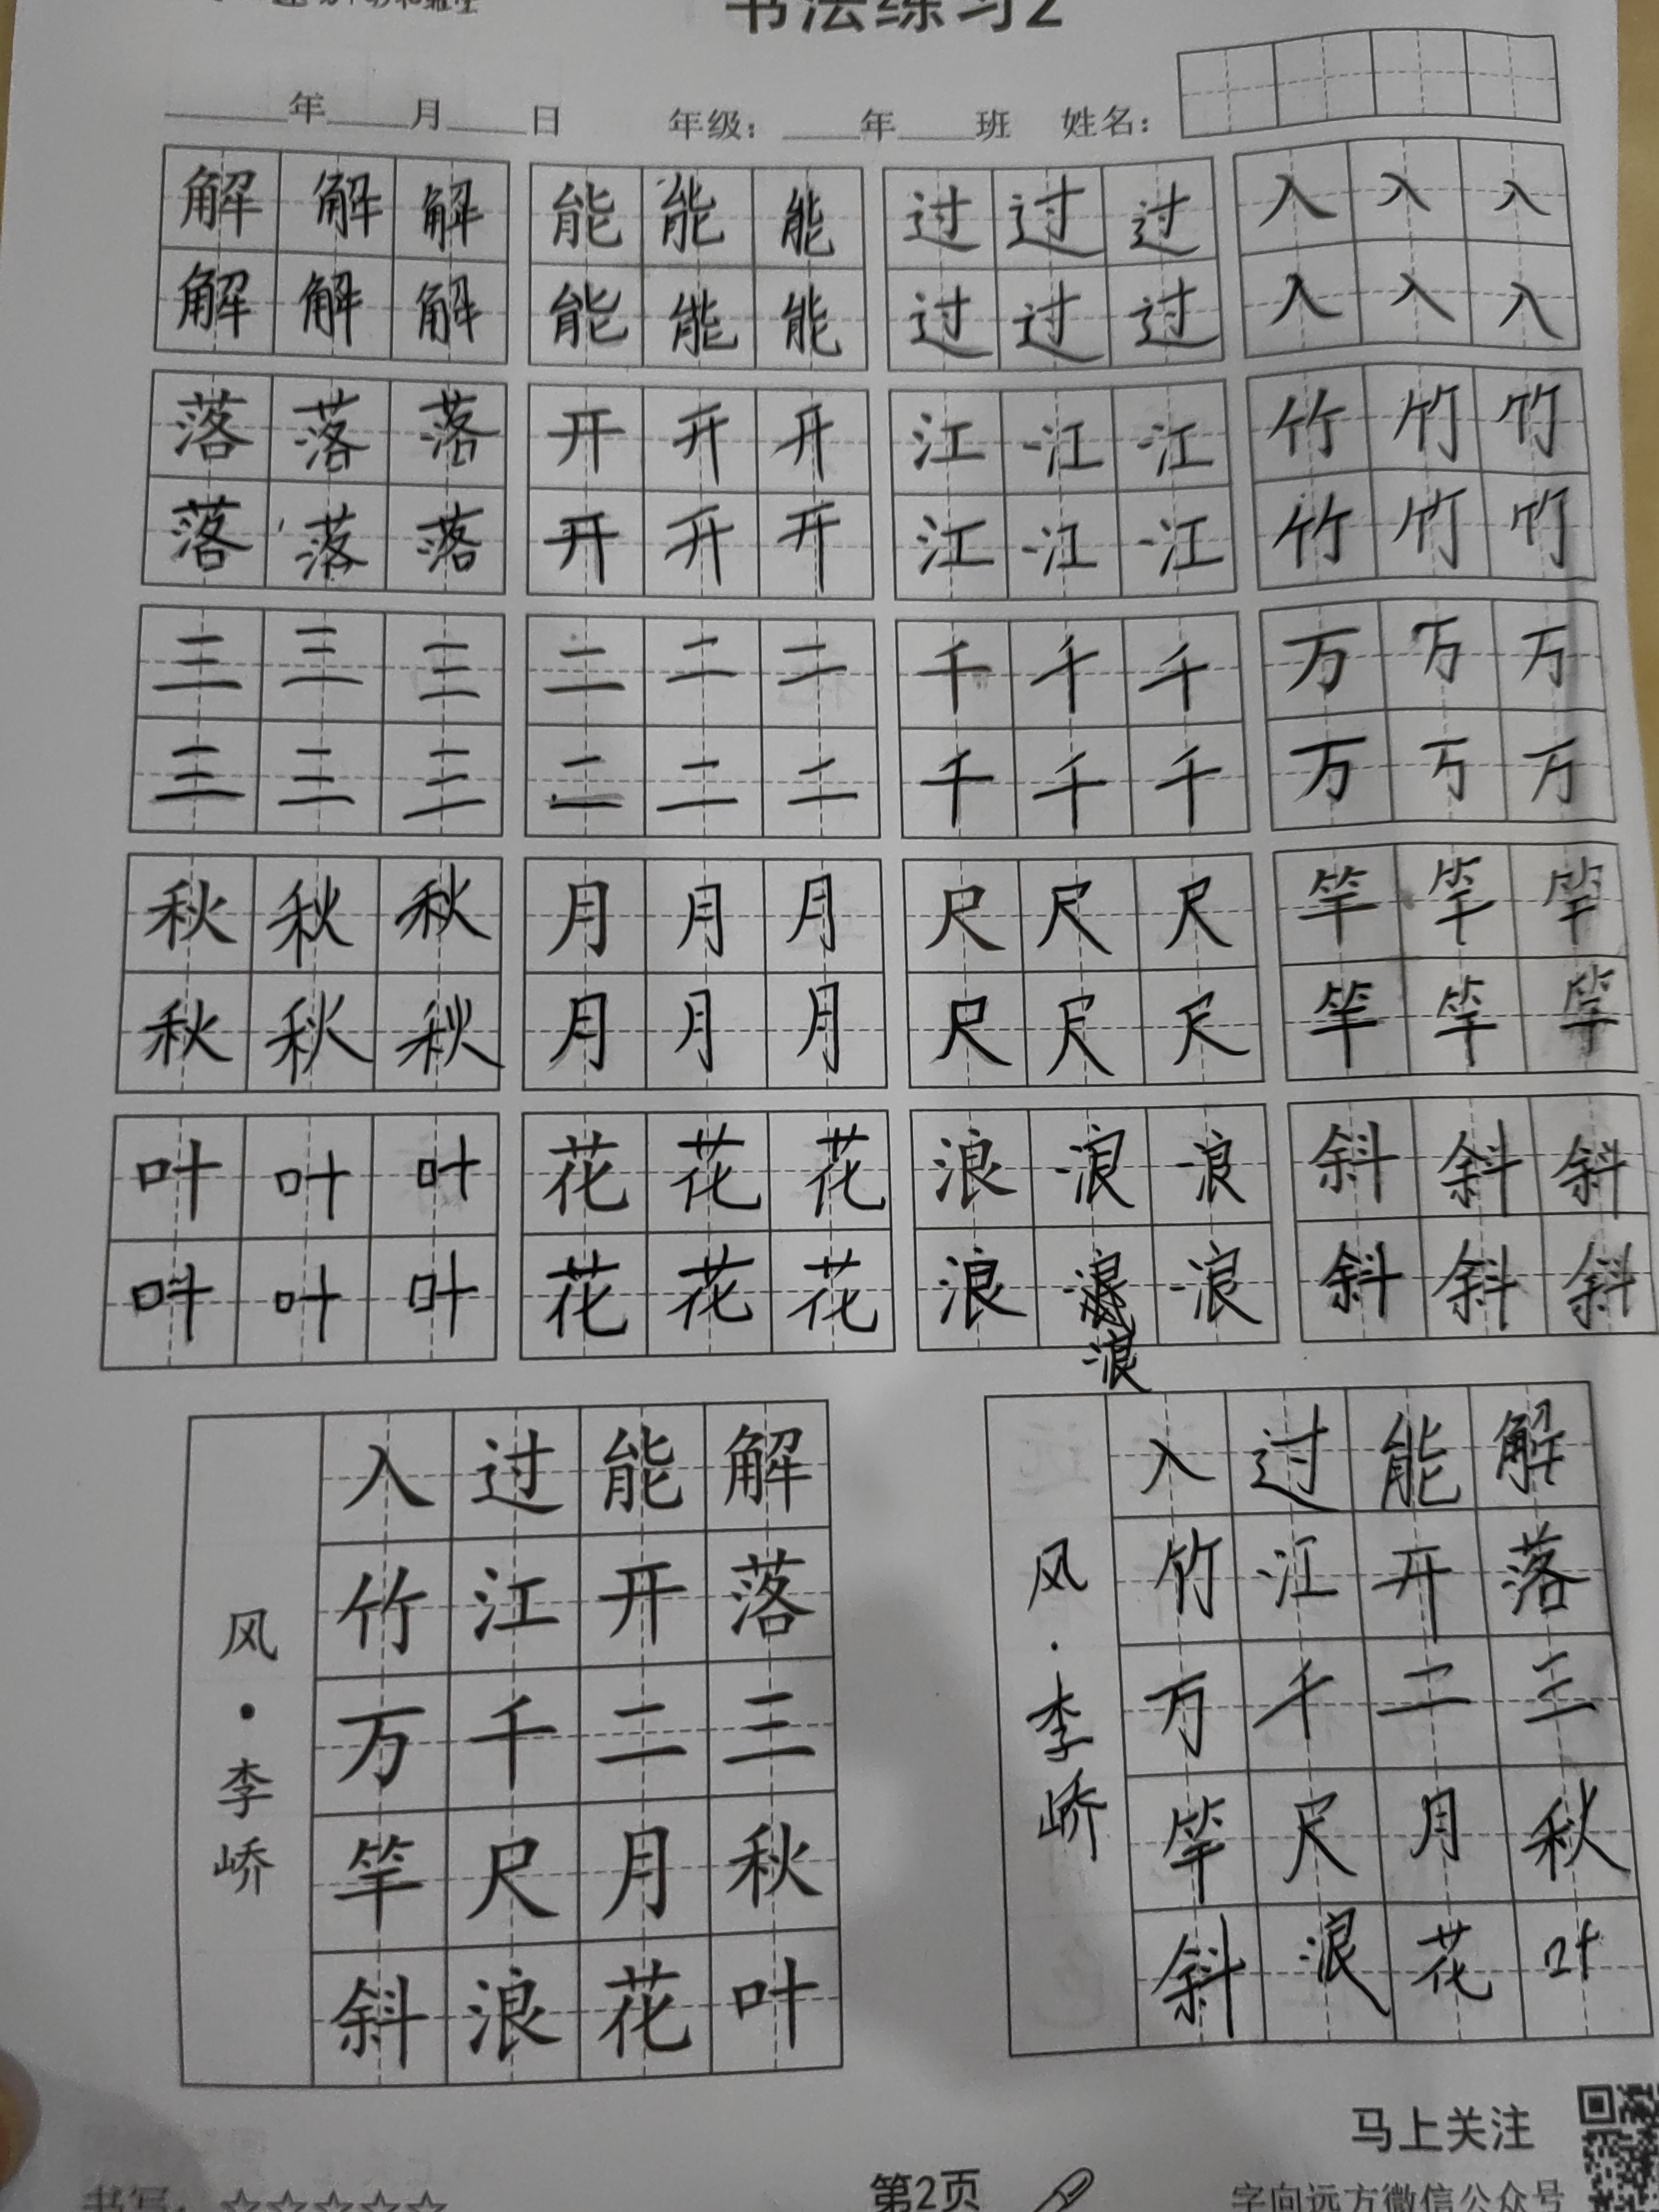 书法练习2
年 月 日 年级： 年 班 姓名：
解 解 解 能 能 能 过 过 过 入 入 入
解 解 解 能 能 能 过 过 过 入 入 入
落 落 落 开 开 开 江 江 江 竹 竹 竹
落 落 落 开 开 开 江 江 江 竹 竹 竹
三 三 三 二 二 二 千 千 千 万 万 万
三 三 三 二 二 二 千 千 千 万 万 万
秋 秋 秋 月 月 月 尺 尺 尺 竿 竿 竿
秋 秋 秋 月 月 月 尺 尺 尺 竿 竿 竿
叶 叶 叶 花 花 花 浪 浪 浪 斜 斜 斜
叶 叶 叶 花 花 花 浪 浪 斜 斜 斜
浪
解落三秋叶
能开二月花
过江千尺浪
入竹万竿斜
风·李峤
解落三秋叶
能开二月花
过江千尺浪
入竹万竿斜
风·李峤
马上关注
书写：☆☆☆☆☆ 第2页 字向远方微信公众号